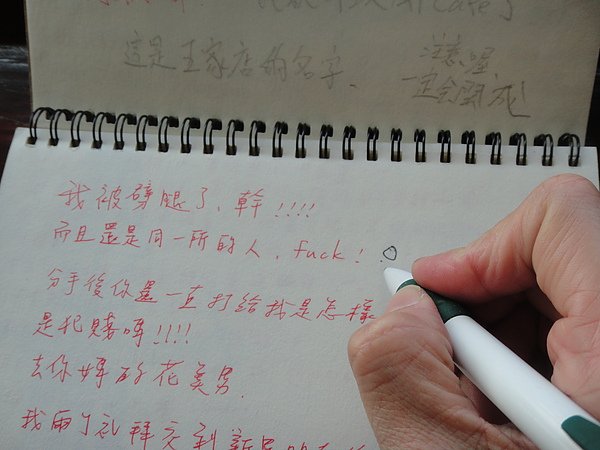 這是王家店的名字、
注意喔
一定會開成
我被劈腿了、幹!!!!
而且還是同一所的人,fuck!
分手後你還一直打給我是怎樣
是犯賤嗎!!!!
去你媽的花美男.
我兩個禮拜交到新男朋友